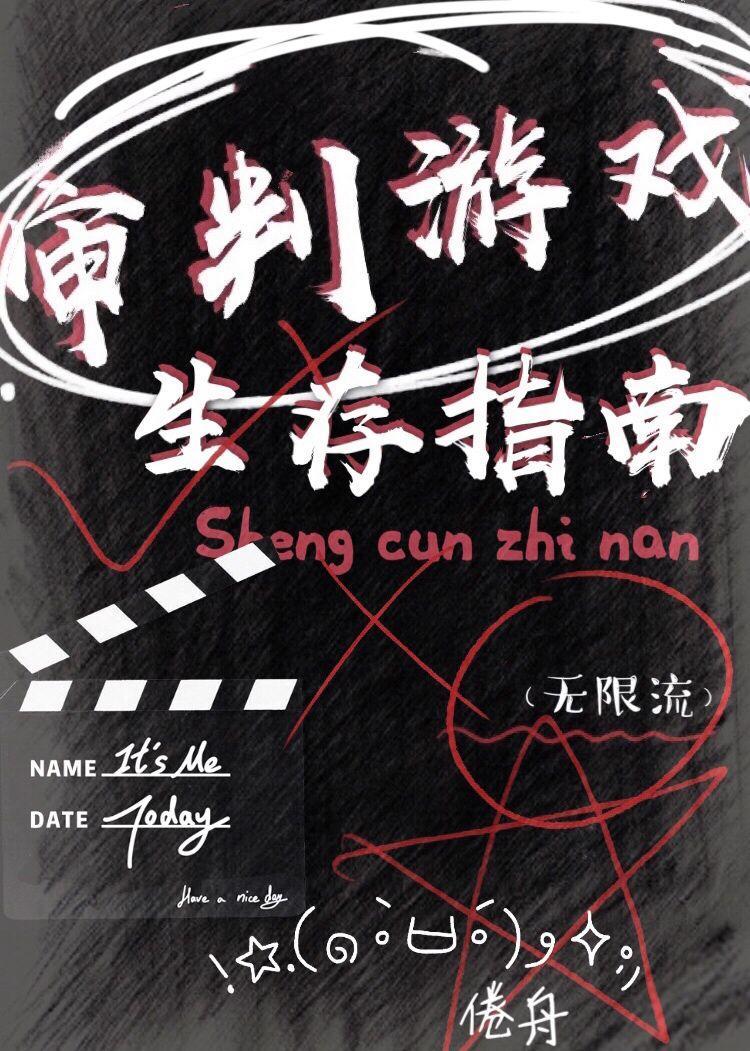 审判游戏
生存指南
Sheng cun zhi nan
（无限流）
NAME It's Me
DATE Today
Have a nice day
倦舟